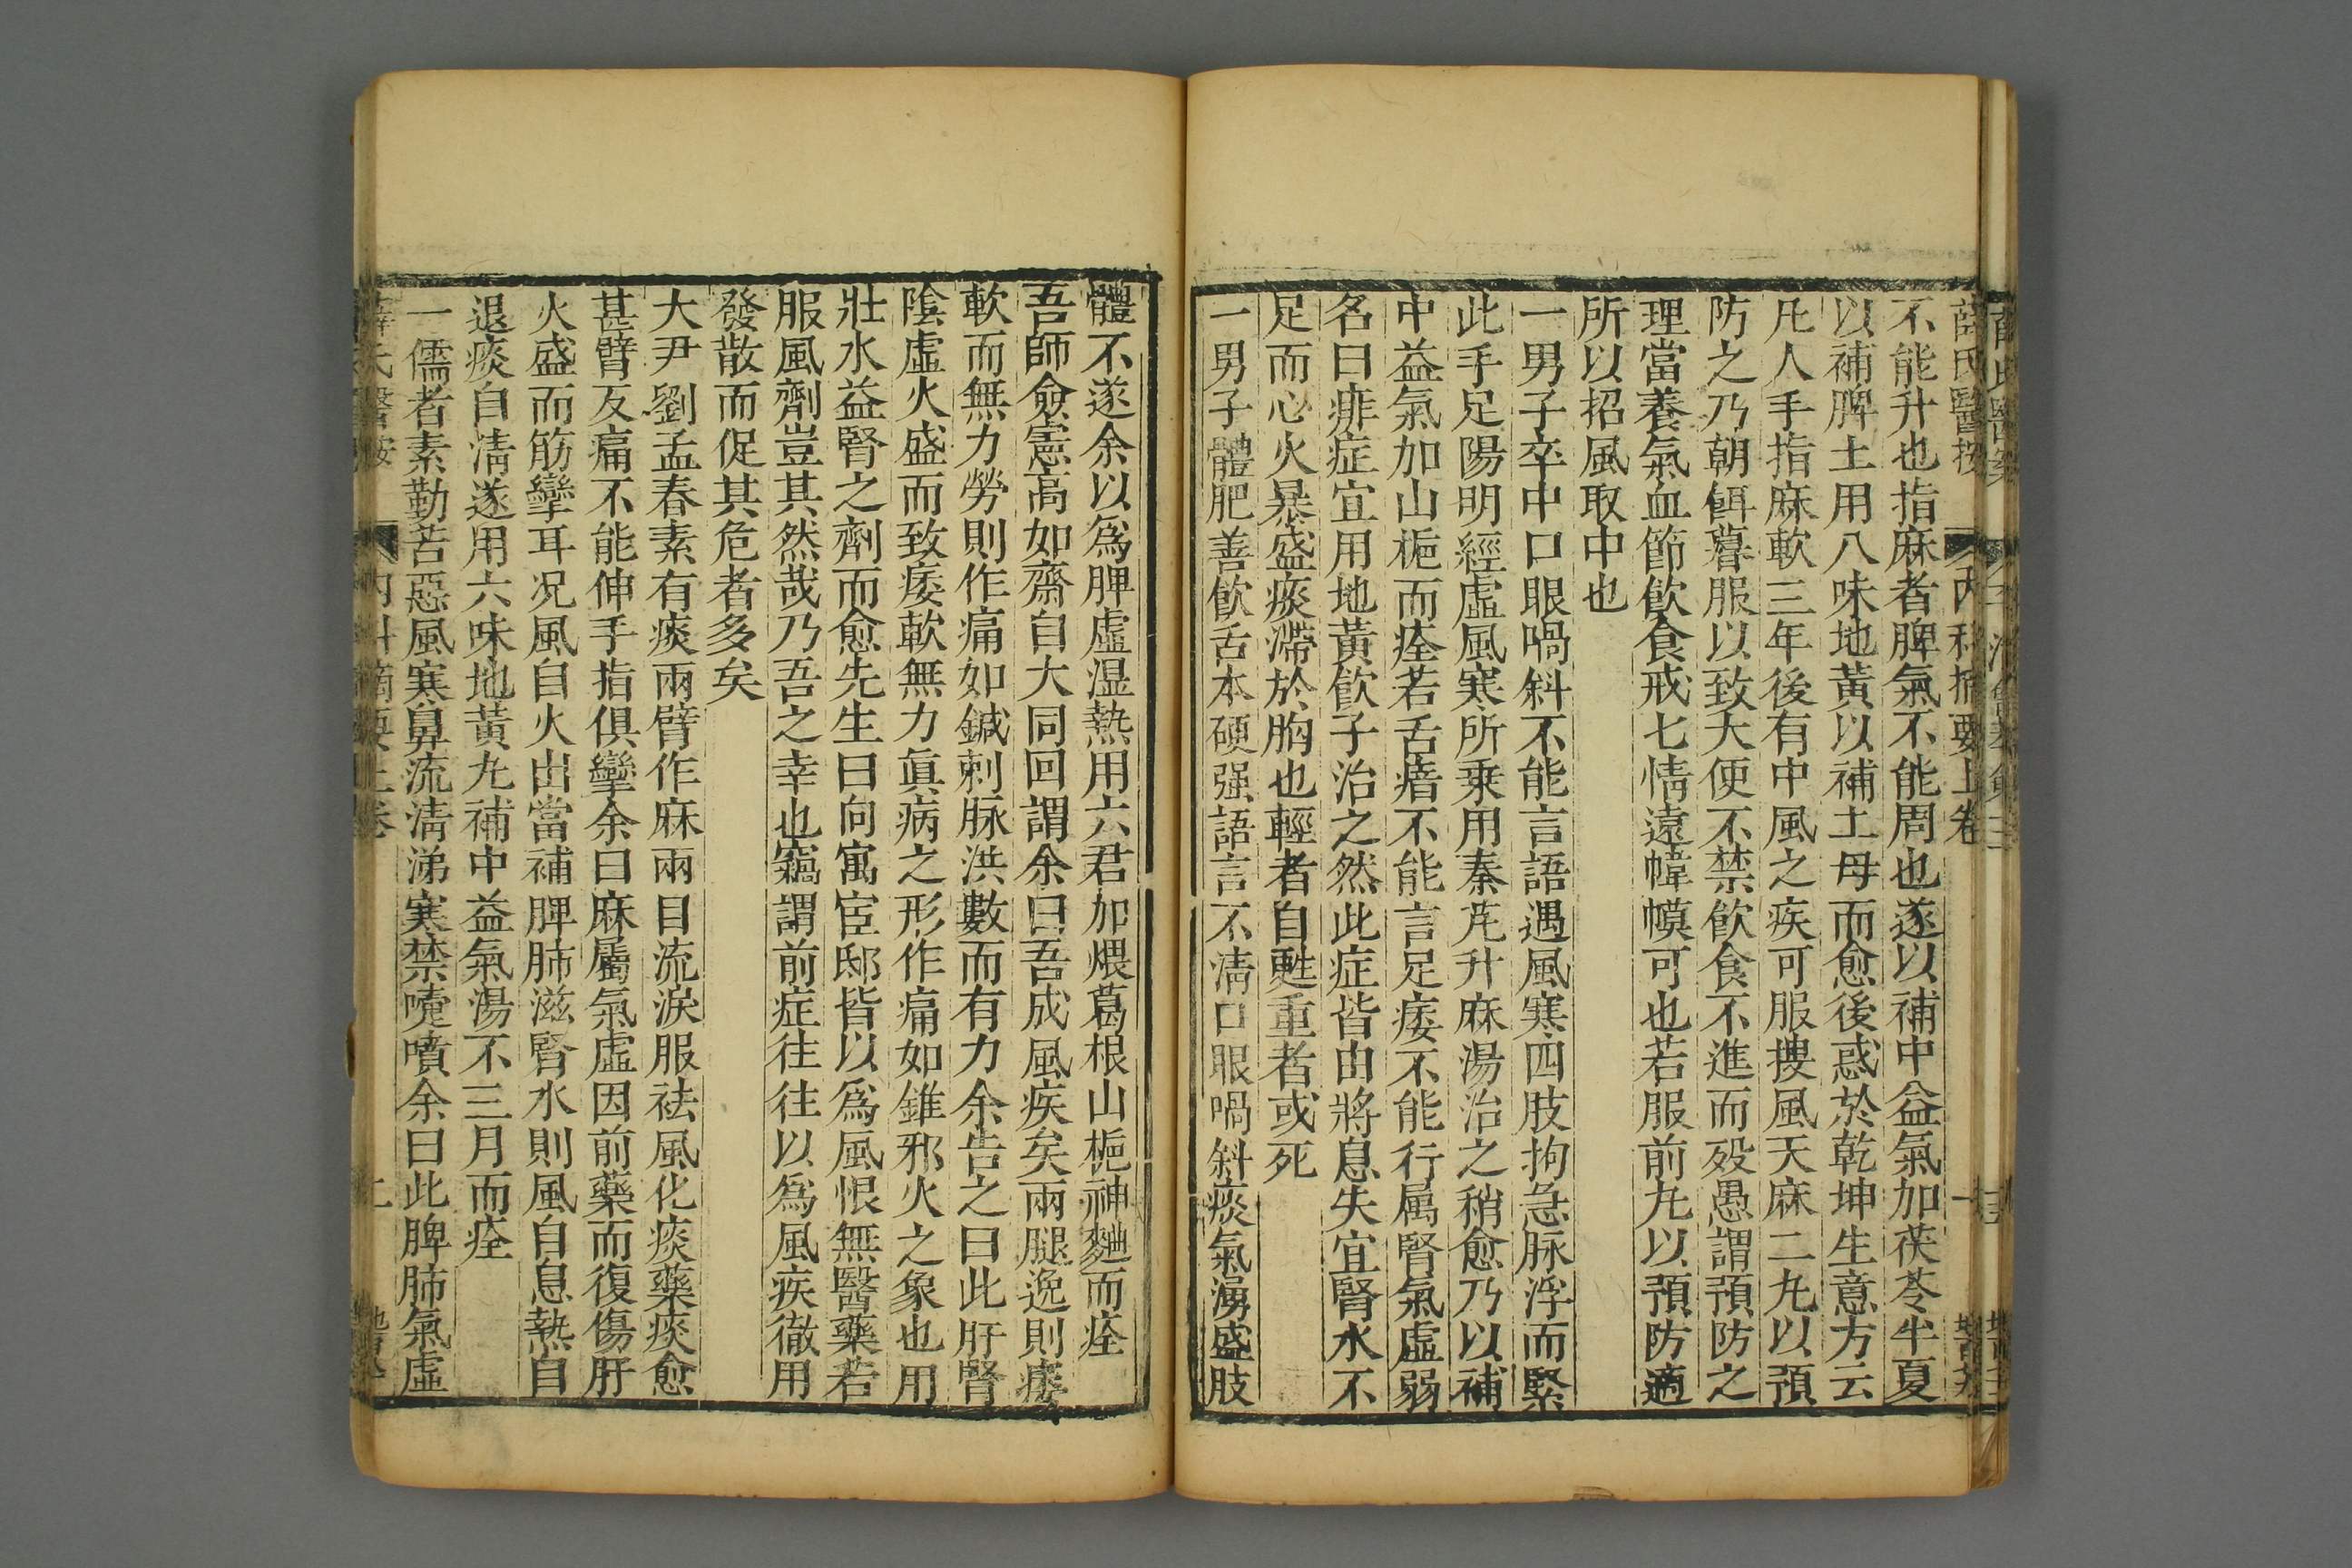 薛氏醫按 內科摘要上卷 一
不能升也指麻者脾氣不能周也遂以補中益氣加茯苓半夏
以補脾土用八味地黃以補土母而愈後惑於乾坤生意方云
凡人手指麻軟三年後有中風之疾可服搜風天麻二丸以預
防之乃朝餌暮服以致大便不禁飲食不進而歿愚謂預防之
理當養氣血節飲食戒七情遠幃幙可也若服前丸以預防適
所以招風取中也
一男子卒中口眼喎斜不能言語遇風寒四肢拘急脉浮而緊
此手足陽明經虛風寒所乘用秦艽升麻湯治之稍愈乃以補
中益氣加山梔而痊若舌瘖不能言足痿不能行属腎氣虛弱
名曰痱症宜用地黃飲子治之然此症皆由將息失宜腎水不
足而心火暴盛痰滯於胸也輕者自甦重者或死
一男子體肥善飲舌本硬强語言不清口眼喎斜痰氣湧盛肢
體不遂余以爲脾虛湿熱用六君加煨葛根山梔神麯而痊
吾師俞憲高如齋自大同回謂余曰吾成風疾矣兩腿逸則痿
軟而無力勞則作痛如鍼刺脉洪數而有力余告之曰此肝腎
陰虛火盛而致痿軟無力眞病之形作痛如錐邪火之象也用
壯水益腎之劑而愈先生曰向寓宦邸皆以爲風恨無醫藥若
服風劑豈其然哉乃吾之幸也竊謂前症往往以爲風疾徹用
發散而促其危者多矣
大尹劉孟春素有痰兩臂作麻兩目流淚服祛風化痰藥痰愈
甚臂反痛不能伸手指俱攣余曰麻屬氣虛因前藥而復傷肝
火盛而筋攣耳况風自火出當補脾肺滋腎水則風自息熱自
退痰自清遂用六味地黃丸補中益氣湯不三月而痊
一儒者素勤苦惡風寒鼻流清涕寒禁嚏噴余曰此脾肺氣虛
薛氏醫按 內科摘要上卷 二